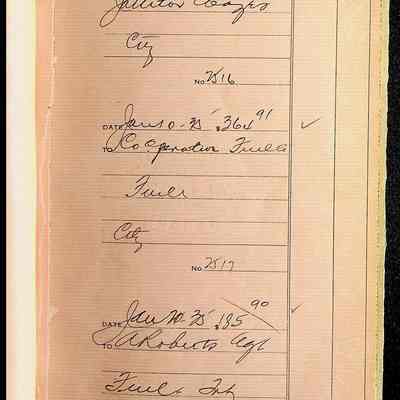 Janitor
City
No 2516
DATE Jan 10-25 $364 91
TO Co Operative Fuel Co
Fuel
City
No 2517
DATE Jan 10-25 $135 90
TO A Roberts Agt
Fuel Frt